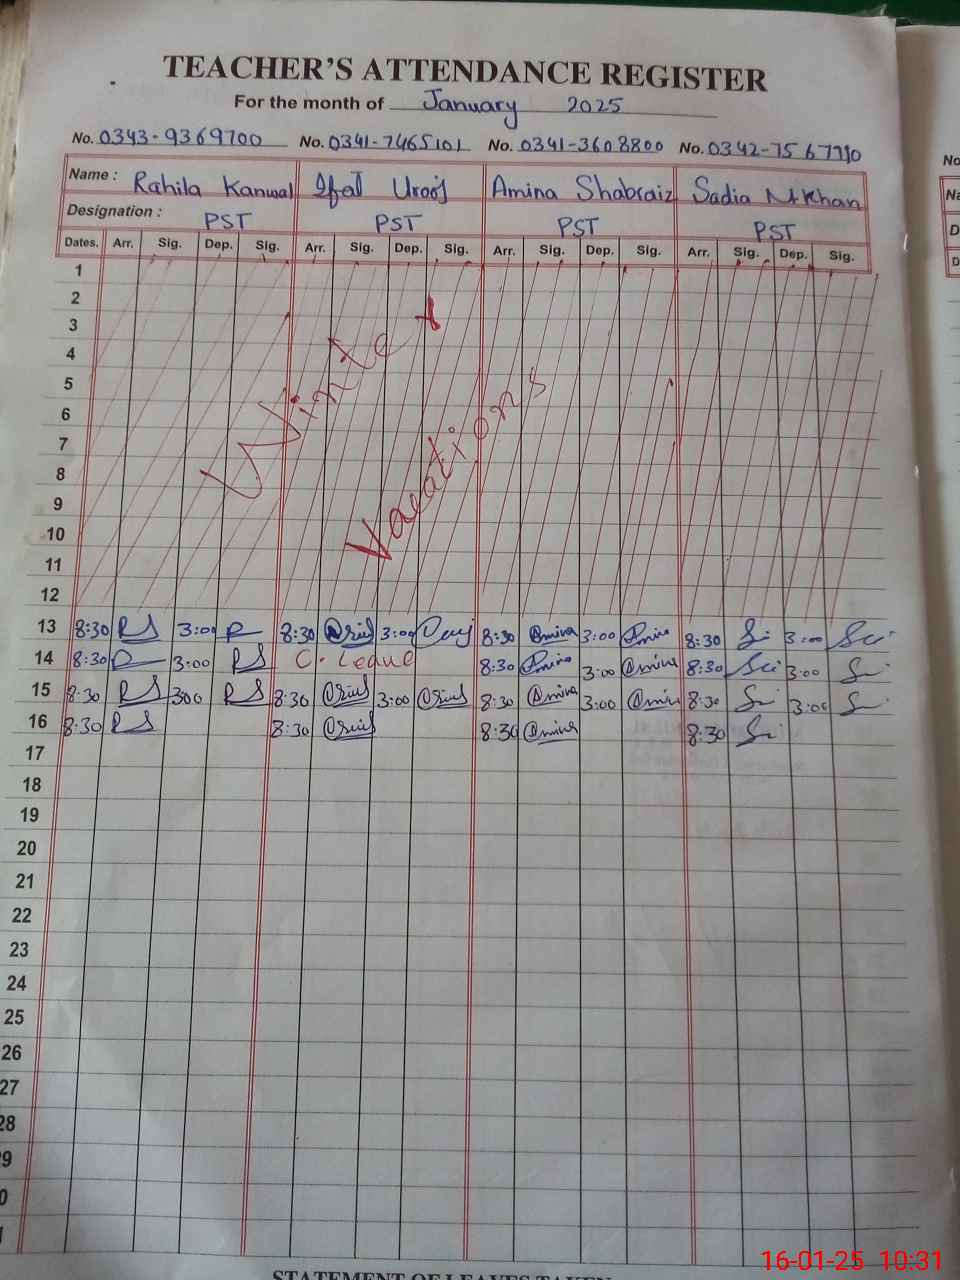 TEACHER'S ATTENDANCE REGISTER
For the month of January 2025
No. 0343-9369700 No. 0341-7465101 No. 0341-3608800 No. 0342-7567710
No
Name : Rahila Kanwal Ifat Urooj Amina Shabraiz Sadia M Khan
Na
Designation : PST PST PST PST
D
Dates. Arr. Sig. Dep. Sig. Arr. Sig. Dep. Sig. Arr. Sig. Dep. Sig. Arr. Sig. Dep. Sig.
D
1
2
3
4
5
6
7
8
9
10
11
12
Winter
Vacations
13 8:30 3:00 8:30 3:00 8:30 Amina 3:00 Amina 8:30 3:00
14 8:30 3:00 C. Leave 8:30 Amina 3:00 Amina 8:30 3:00
15 8:30 3:00 8:30 3:00 8:30 Amina 3:00 Amina 8:30 3:00
16 8:30 8:30 8:30 Amina 8:30
17
18
19
20
21
22
23
24
25
26
27
28
9
0
STATEMENT OF LEAVES TAKEN
16-01-25 10:31